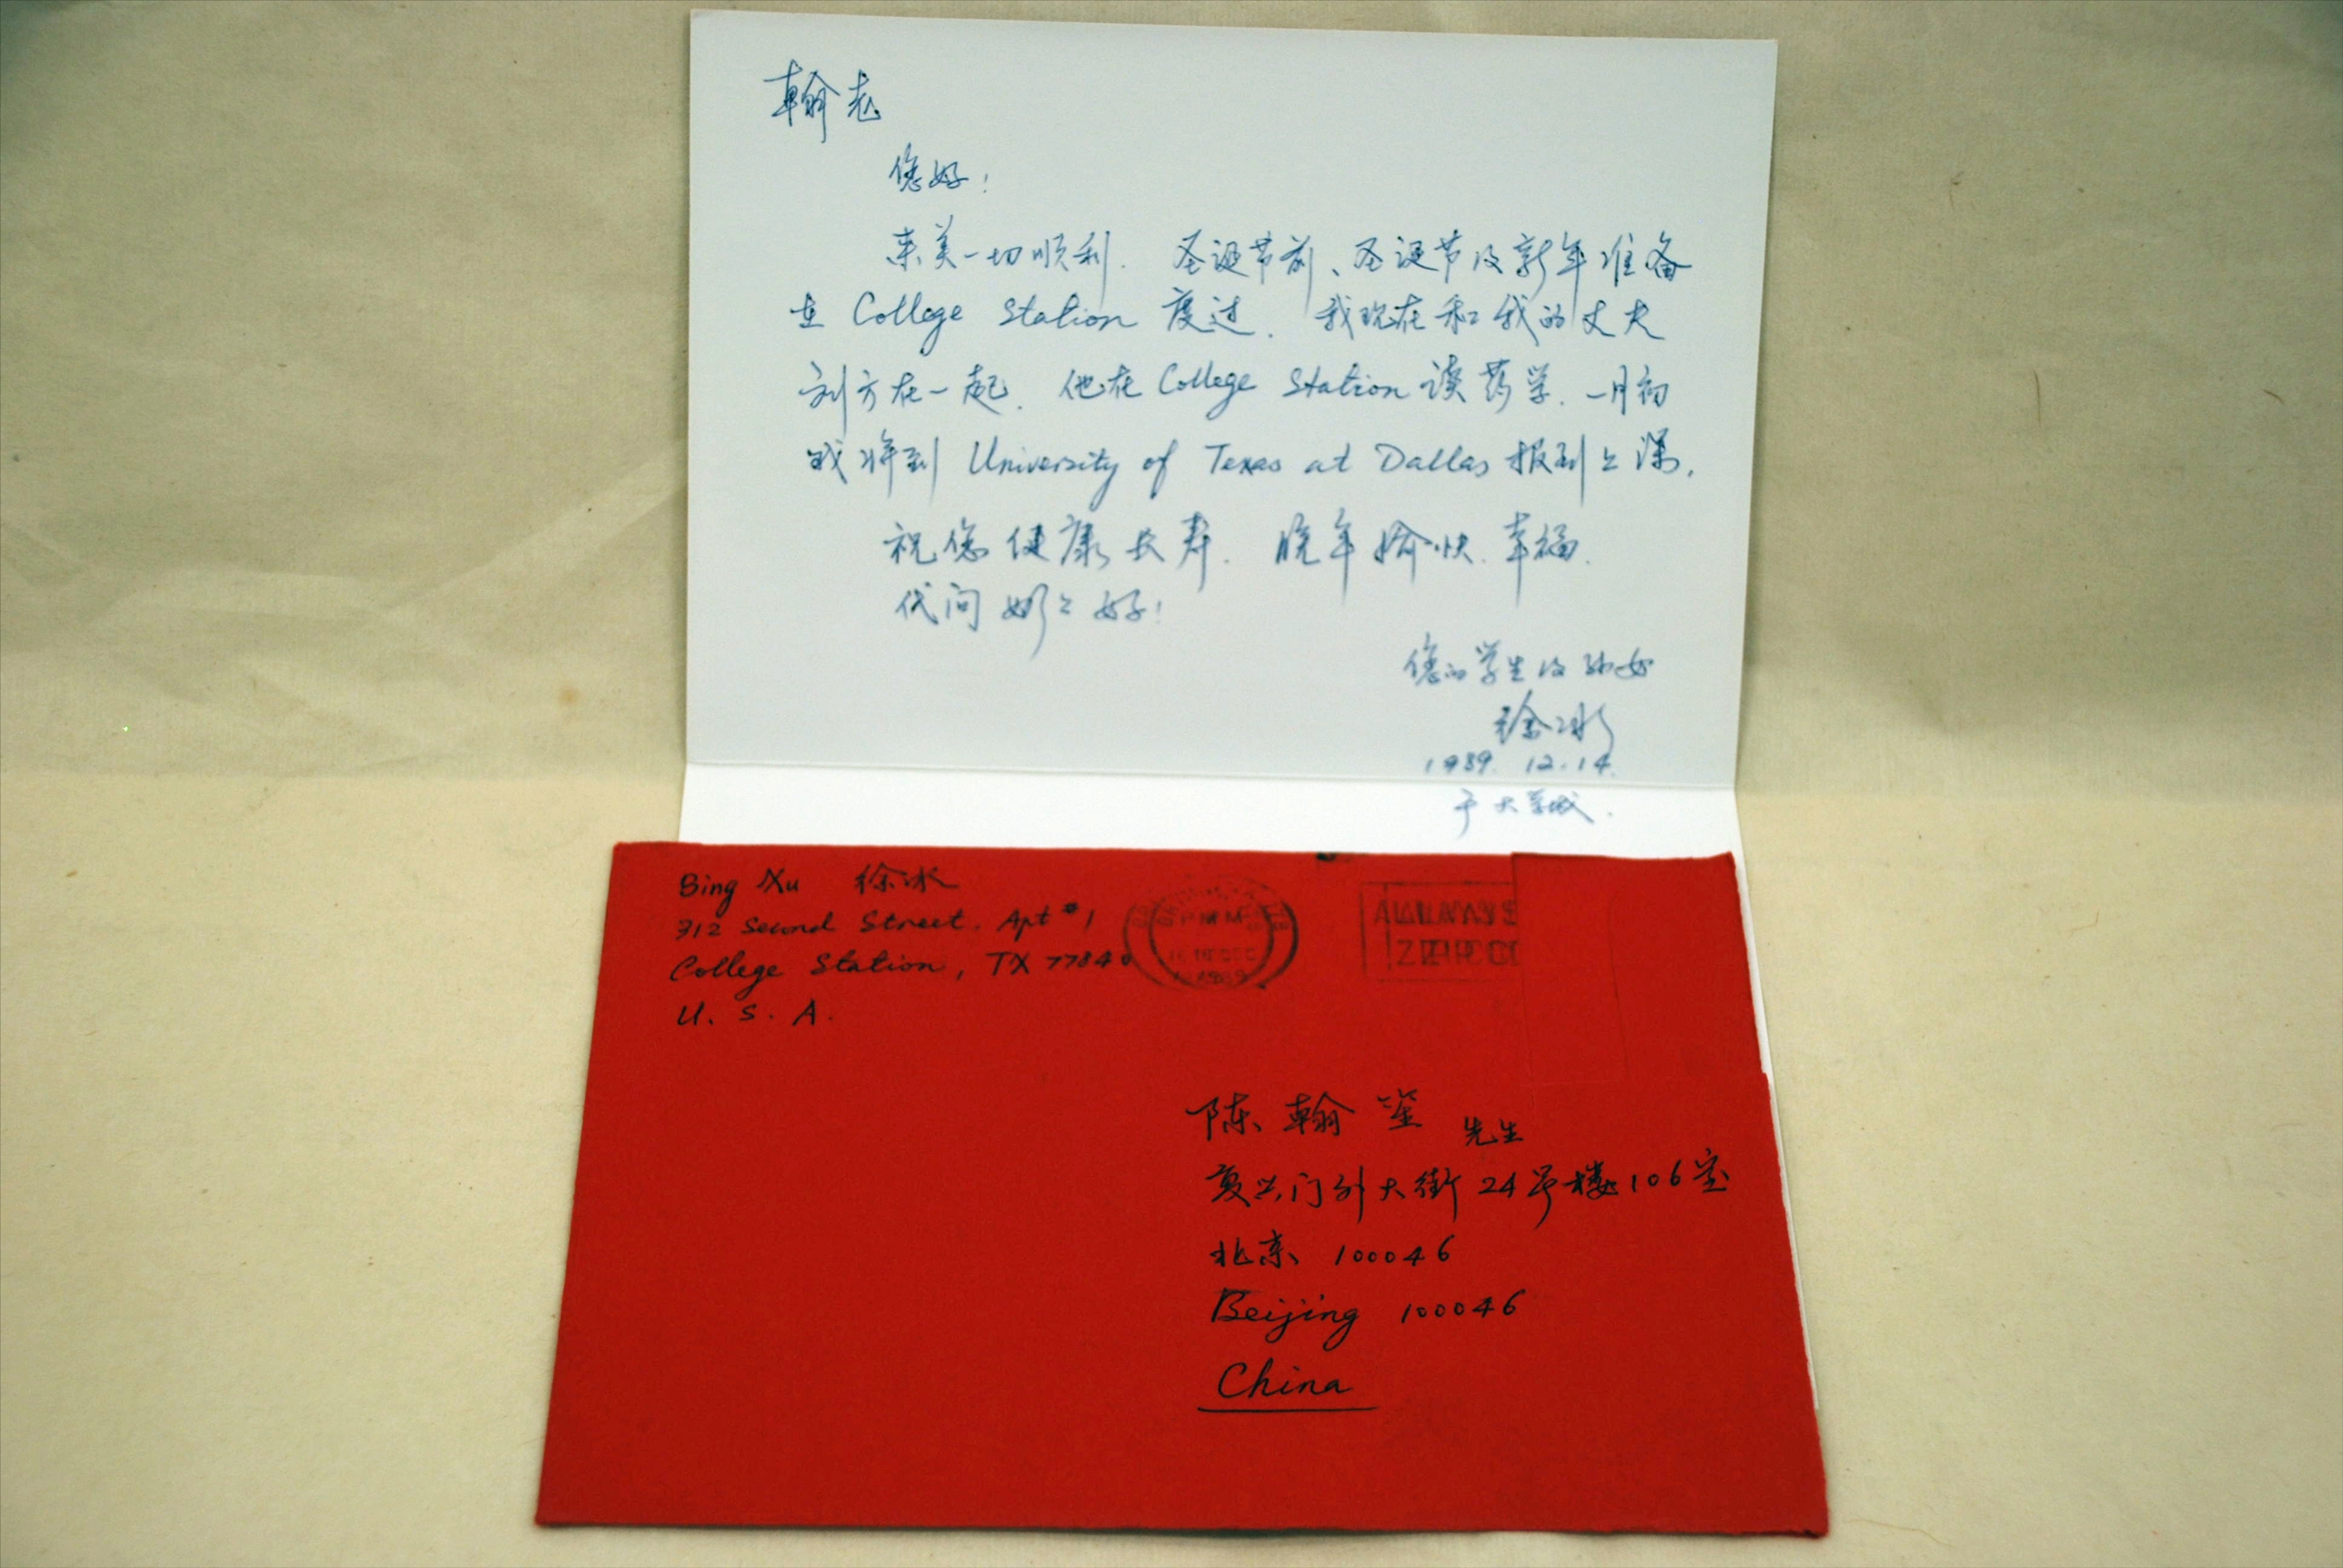 翰老
您好！
来美一切顺利. 圣诞节前、圣诞节及新年准备
在 College Station 度过. 我现在和我的丈夫
刘方在一起. 他在 College Station 读药学. 一月初
我将到 University of Texas at Dallas 报到上课.
祝您健康长寿. 晚年愉快. 幸福.
代问奶奶好！
您的学生及孙女
徐冰
1989. 12.14.
于大学城.
Bing Xu 徐冰
312 Second Street. Apt #1
College Station, TX 77840
U. S. A.
陈翰笙 先生
复兴门外大街24号楼106室
北京 100046
Beijing 100046
China